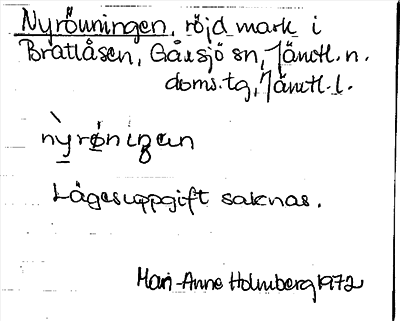 Nyröningen, röjd mark i
Bratlåsen, Gåxsjö sn, Jämtl. n.
doms.tg, Jämtl. l.
nỳrøningen
Lägesuppgift saknas.
Mari-Anne Holmberg 1972